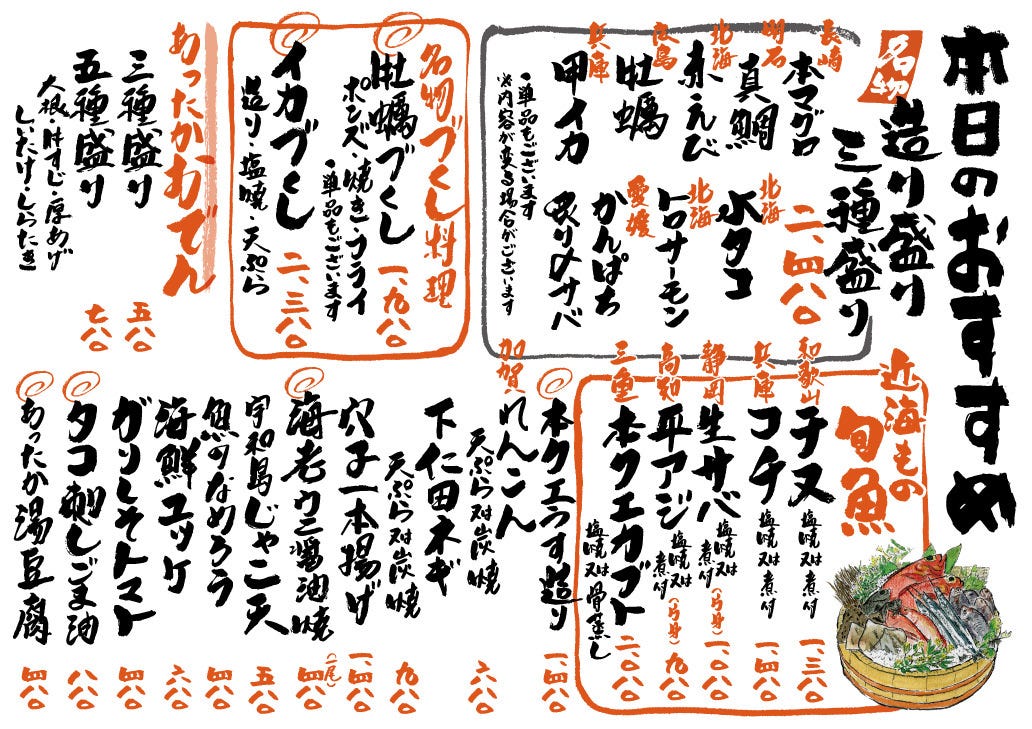 本日のおすすめ
名物
造り盛り
三種盛り
二、四八〇
長崎
本マグロ
明石
真鯛
北海
水タコ
北海
赤えび
北海
トロサーモン
広島
牡蠣
愛媛
かんぱち
兵庫
甲イカ
炙り〆サバ
・単品もございます
※内容が変る場合がございます
名物づくし料理
牡蠣づくし
一、九八〇
ポンズ・焼き・フライ
・単品もございます
イカづくし
二、三八〇
造り・塩焼・天ぷら
あったかおでん
三種盛り
五八〇
五種盛り
七八〇
大根・牛すじ・厚あげ
しいたけ・しらたき
近海もの
旬魚
和歌山
チヌ
塩焼又は煮付
一、三八〇
兵庫
コチ
塩焼又は煮付
一、四八〇
静岡
生サバ
塩焼又は煮付(弓身)
一、〇八〇
高知
平アジ
塩焼又は煮付(弓身)
九八〇
三重
本クエカブト
塩焼又は骨蒸し
二、〇八〇
本クエうす造り
一、四八〇
加賀
れんこん
天ぷら対炭焼
六八〇
下仁田ネギ
天ぷら対炭焼
九八〇
穴子一本揚げ
一、四八〇
海老ウニ醤油焼
(二尾)四八〇
宇和島じゃこ天
五八〇
魚のなめろう
四八〇
海鮮ユッケ
六八〇
ガリしそトマト
四八〇
タコ刺しごま油
八八〇
あったか湯豆腐
四八〇